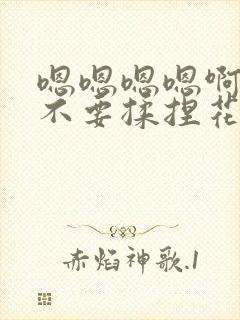 嗯嗯嗯嗯啊
不要揉捏花
赤焰神歌.1